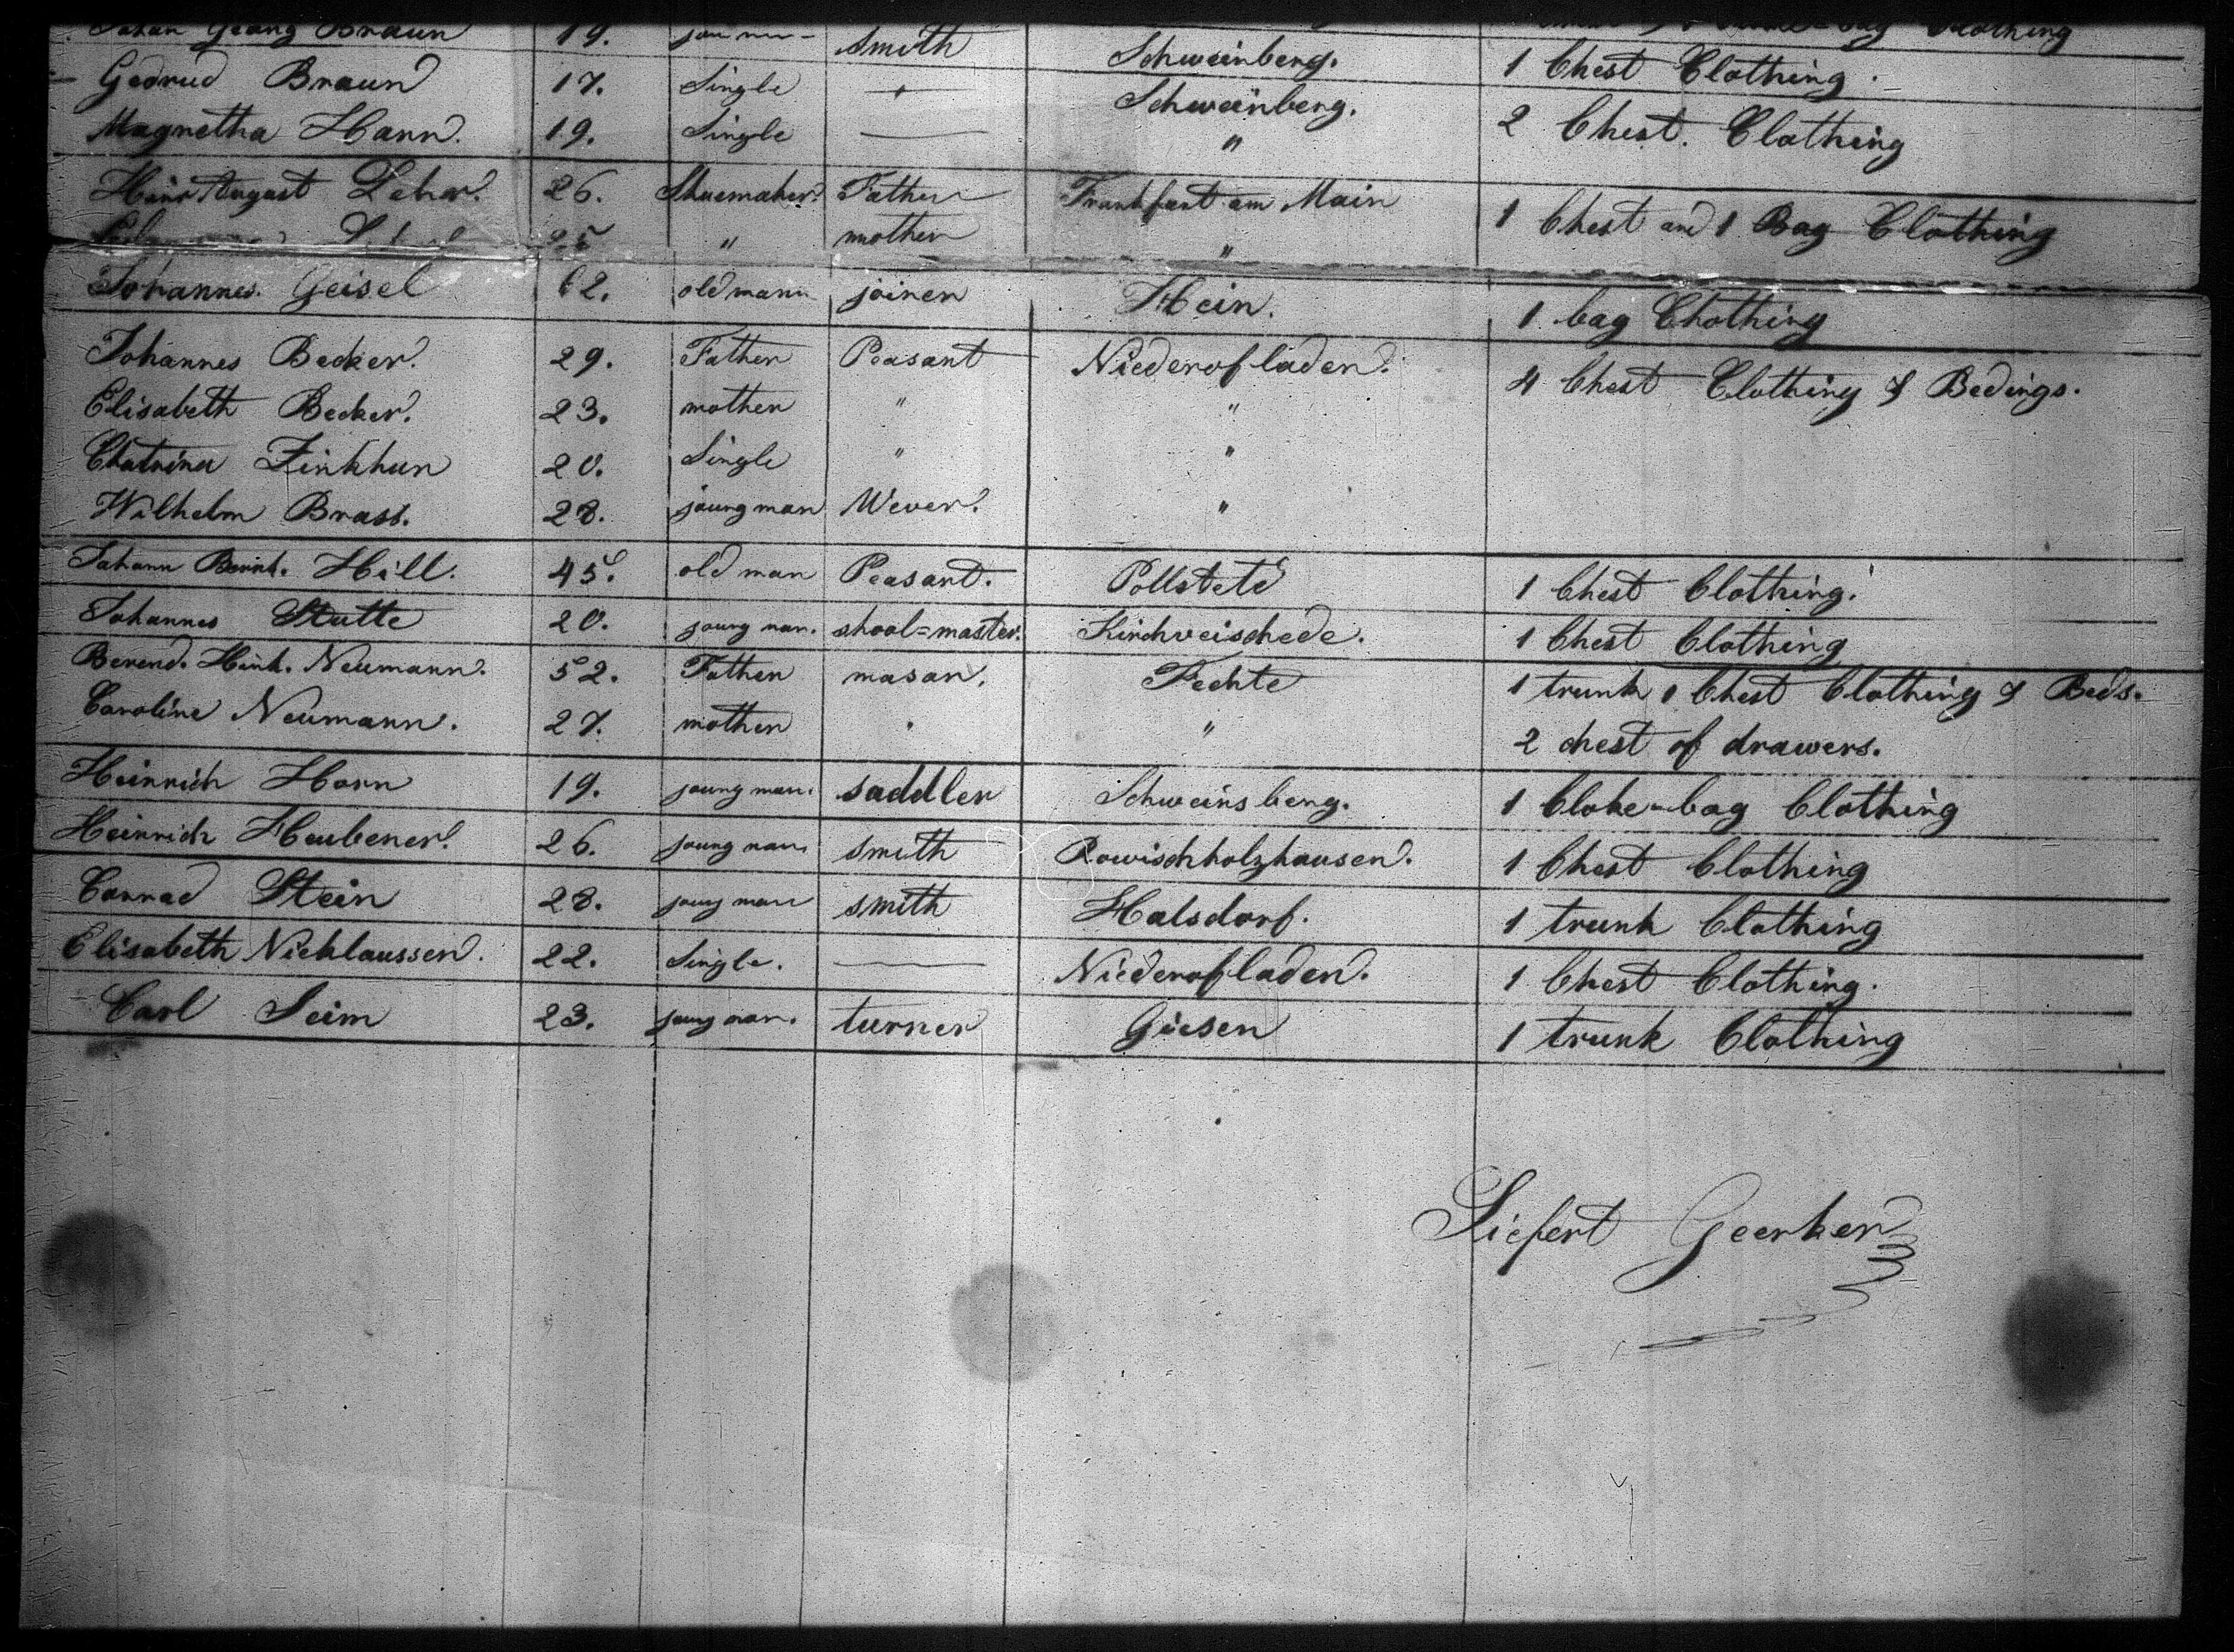 Johan Georg Braun 19. smith Schweinberg. Clothing
Gedrud Braun 17. Single Schweinberg. 1 Chest Clothing.
Magretha Hann. 19. Single — " 2 Chest. Clothing
Heinr August Leher. 26. Shuemaker. Father Frankfurt am Main 1 Chest and 1 Bag Clothing
25 " mother "
Johannes. Geisel 62. old mann joiner Hein. 1 bag Chothing
Johannes Becker. 29. Father Peasant Niederofladen. 4 Chest Clothing & Bedings.
Elisabeth Becker. 23. mother " "
Chatrina Finkhun 20. Single " "
Wilhelm Brass. 28. joung man Wever. "
Johann Bernh. Hill. 45. old man Peasant. Pollstete 1 Chest Clothing.
Johannes Stutte 20. joung man. shool=master. Kirchveischede. 1 Chest Clothing
Berend. Heink. Neumann. 52. Father mason. Fechte 1 trunk 1 Chest Clothing & Beds.
Caroline Neumann. 27. mother " " 2 chest of drawers.
Heinrich Horn 19. joung man. saddler Schweinsberg. 1 Cloke-bag Clothing
Heinrich Heubener. 26. joung man. smith Rowischholzhausen. 1 Chest Clothing
Conrad Stein 28. joung man smith Halsdorf. 1 trunk Clothing
Elisabeth Nicklaussen. 22. Single. — Niederofladen. 1 Chest Clothing.
Carl Seim 23. joung man. turner Giesen 1 trunk Clothing
Siefert Geerken